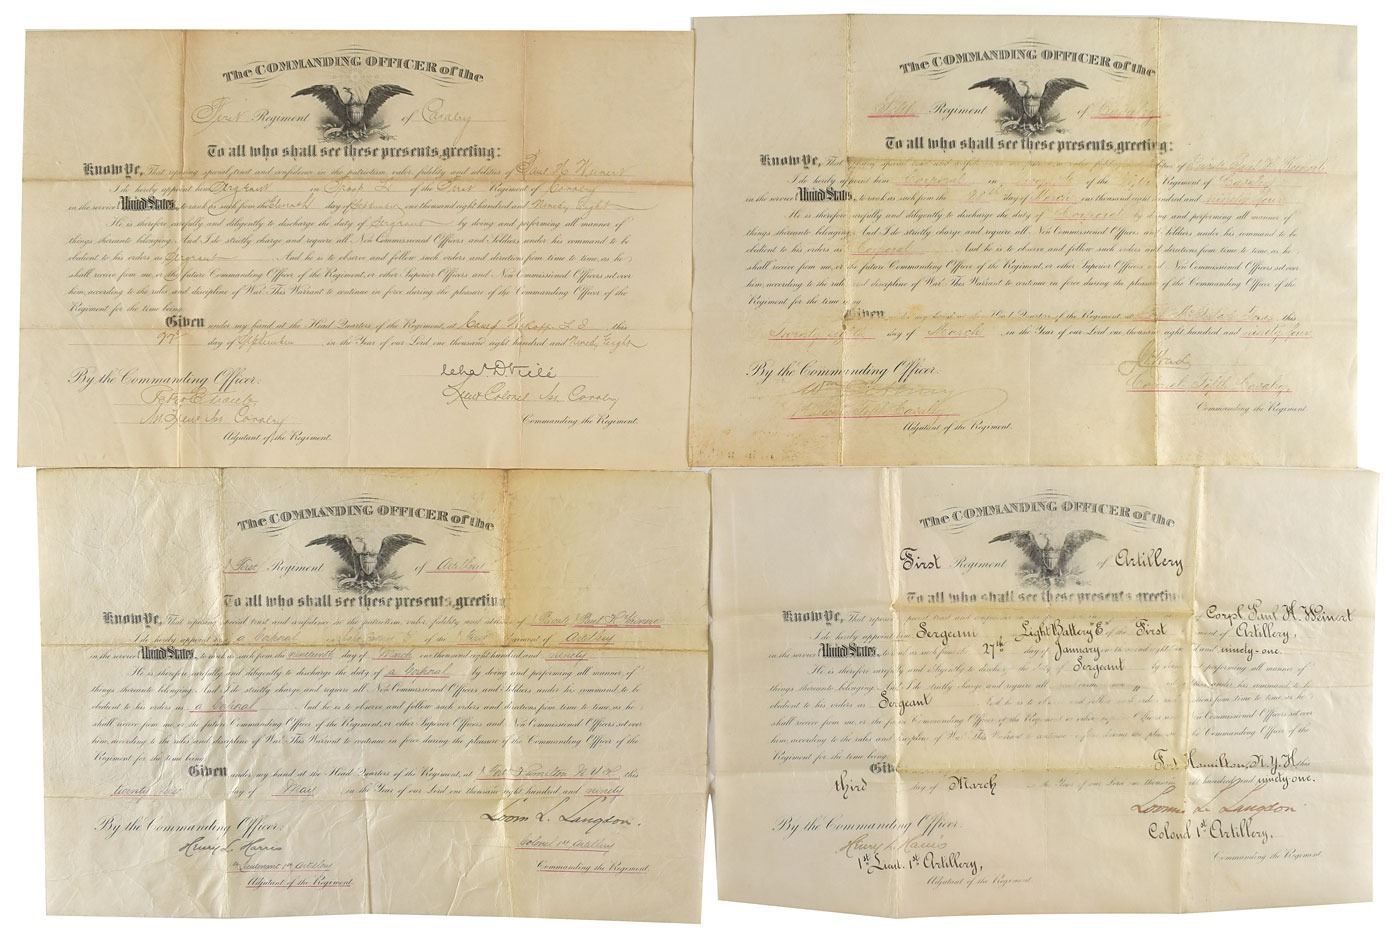 The COMMANDING OFFICER of the
First Regiment of Cavalry
To all who shall see these presents, greeting:
Know Ye, That reposing special trust and confidence in the patriotism, valor, fidelity and abilities of Paul H. Weinert
I do hereby appoint him Sergeant in Troop of the First Regiment of Cavalry
in the service United States, to rank as such from the day of September one thousand eight hundred and Ninety Eight
He is therefore carefully and diligently to discharge the duty of Sergeant by doing and performing all manner of
things thereunto belonging. And I do strictly charge and require all Non Commissioned Officers and Soldiers under his command to be
obedient to his orders as Sergeant And he is to observe and follow such orders and directions from time to time, as he
shall receive from me, or the future Commanding Officer of the Regiment, or other Superior Officers and Non Commissioned Officers set over
him, according to the rules and discipline of War. This Warrant to continue in force during the pleasure of the Commanding Officer of the
Regiment for the time being.
Given under my hand at the Head Quarters of the Regiment, at Camp Wikoff L.I. this
day of September in the Year of our Lord one thousand eight hundred and Ninety Eight
By the Commanding Officer:
Chas D Viele
Lieut Colonel 1st Cavalry
Commanding the Regiment.
1st Lieut 1st Cavalry
Adjutant of the Regiment.
The COMMANDING OFFICER of the
Fifth Regiment of Cavalry
To all who shall see these presents, greeting:
Know Ye, That reposing special trust and confidence in the patriotism, valor, fidelity and abilities of Private Paul H. Weinert
I do hereby appoint him Corporal in Troop of the Fifth Regiment of Cavalry
in the service United States, to rank as such from the day of March one thousand eight hundred and ninety four
He is therefore carefully and diligently to discharge the duty of Corporal by doing and performing all manner of
things thereunto belonging. And I do strictly charge and require all Non Commissioned Officers and Soldiers under his command to be
obedient to his orders as Corporal And he is to observe and follow such orders and directions from time to time, as he
shall receive from me, or the future Commanding Officer of the Regiment, or other Superior Officers and Non Commissioned Officers set over
him, according to the rules and discipline of War. This Warrant to continue in force during the pleasure of the Commanding Officer of the
Regiment for the time being.
Given under my hand at the Head Quarters of the Regiment, at Fort McIntosh, Texas this
Twenty eighth day of March in the Year of our Lord one thousand eight hundred and ninety four
By the Commanding Officer:
Colonel Fifth Cavalry,
Commanding the Regiment.
Fifth Cavalry
Adjutant of the Regiment.
The COMMANDING OFFICER of the
First Regiment of Artillery
To all who shall see these presents, greeting
Know Ye, That reposing special trust and confidence in the patriotism, valor, fidelity and abilities Private Paul H. Weinert
I do hereby appoint him a Corporal in of the First Regiment of Artillery
in the service United States, to rank as such from the nineteenth day of March one thousand eight hundred and ninety
He is therefore carefully and diligently to discharge the duty of a Corporal by doing and performing all manner of
things thereunto belonging. And I do strictly charge and require all Non Commissioned Officers and Soldiers under his command to be
obedient to his orders as a Corporal And he is to observe and follow such orders and directions from time to time, as he
shall receive from me, or the future Commanding Officer of the Regiment, or other Superior Officers and Non Commissioned Officers set over
him, according to the rules and discipline of War. This Warrant to continue in force during the pleasure of the Commanding Officer of the
Regiment for the time being.
Given under my hand at the Head Quarters of the Regiment, at Fort Hamilton N.Y.H. this
day of May in the Year of our Lord one thousand eight hundred, and ninety
By the Commanding Officer:
Loomis L. Langdon.
Colonel 1st Artillery
Commanding the Regiment.
Henry L. Harris
1st Lieutenant 1st Artillery
Adjutant of the Regiment.
The COMMANDING OFFICER of the
First Regiment of Artillery
To all who shall see these presents, greeting
Know Ye, That reposing special trust and Corpl. Paul H. Weinert
I do hereby appoint him Sergeant Light Battery "E" of the First Artillery,
in the service United States, to rank as such from the 27th day of January ninety-one.
He is therefore carefully and diligently to discharge the duty of Sergeant by doing and performing all manner of
things thereunto belonging. And I do strictly charge and require all under his command to be
obedient to his orders as Sergeant And he is to directions from time to time, as he
shall receive from me, or the future Commanding Officer of the Regiment or other Superior Officers and Non Commissioned Officers set over
him, according to the rules and discipline of War. This Warrant to continue in force during the pleasure of the Commanding Officer of the
Regiment for the time being.
Given Ft. Hamilton, N.Y.H. this
third day of March in the Year of our Lord one thousand eight hundred and ninety-one.
By the Commanding Officer:
Loomis L. Langdon
Colonel 1st Artillery.
Commanding the Regiment.
Henry L. Harris
1st Lieut. 1st Artillery,
Adjutant of the Regiment.